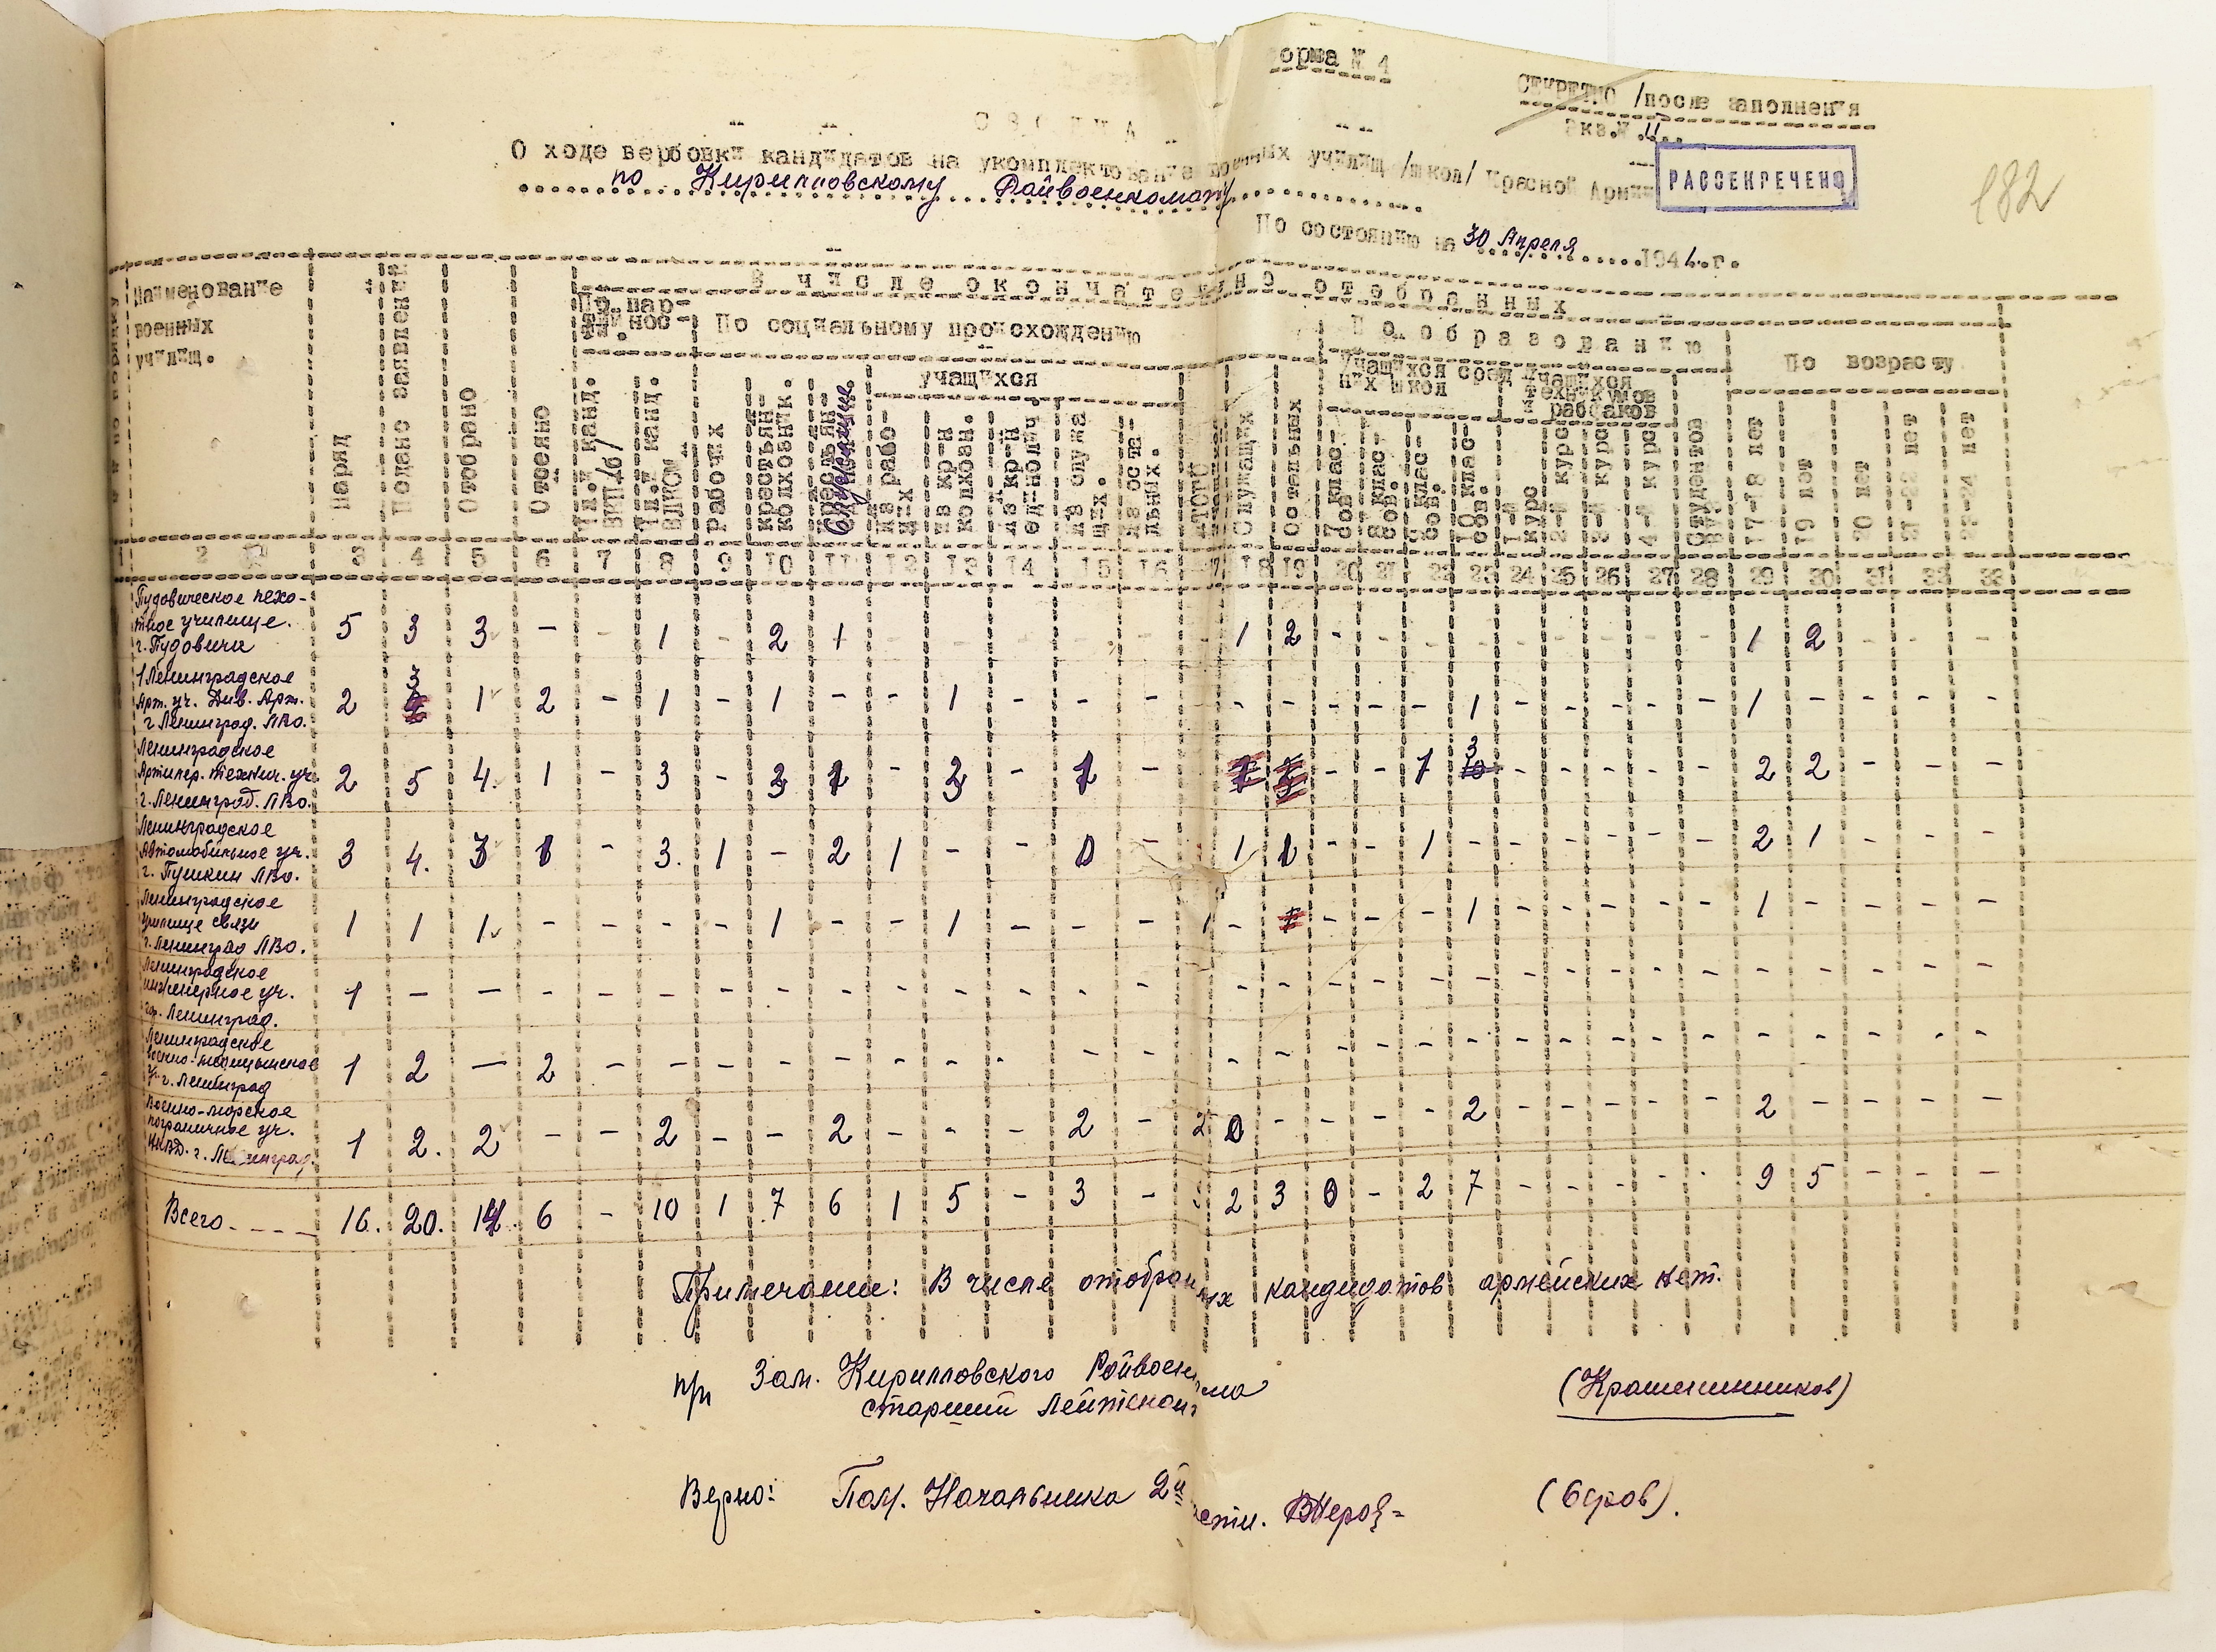 орма № 1
СЕКРЕТНО /после заполнения
Экз.№ 11..
С В О Д К А
О ходе вербовки кандидатов на укомплектование военных училищ /школ/ Красной Армии
РАССЕКРЕЧЕНО
182
по Кирилловскому Райвоенкомату
По состоянию на 30 Апреля 1941.г.
Наименование военных училищ.
Наряд
Подано заявлений
Отобрано
Отсеяно
В числе окончательно отобранных
По партийности.
По социальному происхождению
По образованию
По возрасту
учащихся
Учащихся средних школ
Учащихся техникумов рабфаков
Чл.и канд. ВКП/б/
Чл.и канд. ВЛКСМ
рабочих
крестьян-колхозник.
крестьян- Служащих.
из рабочих
из кр-н колхозн.
из кр-н единолич.
из служащих.
из остальных.
ИТОГО
Служащих
Остальных
7 классов
8 классов.
9 классов.
10 классов.
1-й курс
2-й курс
3-й курс
4-й курс
Студентов
17-18 лет
19 лет
20 лет
21-22 лет
23-24 лет
1 2 3 4 5 6 7 8 9 10 11 12 13 14 15 16 17 18 19 20 21 22 23 24 25 26 27 28 29 30 31 32 33
Пудовическое пехо-
тное училище.
г. Пудовичи
5 3 3 - - 1 - 2 1 - - - - - - 1 2 - - - - - - - - - 1 2 - - -
1 Ленинградское
Арт. уч. Див. Арт.
г Ленинград. ЛВО.
2 3 1 2 - 1 - 1 - - 1 - - - - - - - - 1 - - - - - 1 - - - -
Ленинградское
Артилер. технич. уч.
г. Ленинград. ЛВО.
2 5 4. 1 - 3 - 3 1 - 3 - 1 - - - 1 3 - - - - - 2 2 - - -
Ленинградское
Автомобильное уч.
г. Пушкин ЛВО.
3 4. 3 1 - 3. 1 - 2 1 - - 0 - 1 1 - - 1 - - - - - - 2 1 - - -
Ленинградское
училище связи
г. Ленинград ЛВО.
1 1 1 - - - - 1 - - 1 - - - 1 - - - - 1 - - - - - 1 - - - -
Ленинградское
инженерное уч.
гор. Ленинград.
1 - - - - - - - - - - - - - - - - - - - - - - - - - - - -
Ленинградское
военно-медицинское
у. г. Ленинград
1 2 — 2 - - - - - - - - - - - - - - - - - - - - - - - - -
Военно-морское
пограничное уч.
НКВД. г. Ленинград.
1 2. 2 - - 2 - - 2 - - - 2 - 2 0 - - - - 2 - - - - - 2 - - - -
Всего. - - - - 16. 20. 14. 6 - 10 1 7 6 1 5 - 3 - 2 3 0 - 2 7 - - - - - 9 5 - - -
Примечание: В числе отобранных кандидатов армейских нет.
п/п Зам. Кирилловского Райвоенкома
старший лейтенант (Крашенинников)
Верно: Пом. Начальника 2й части. (Серов).